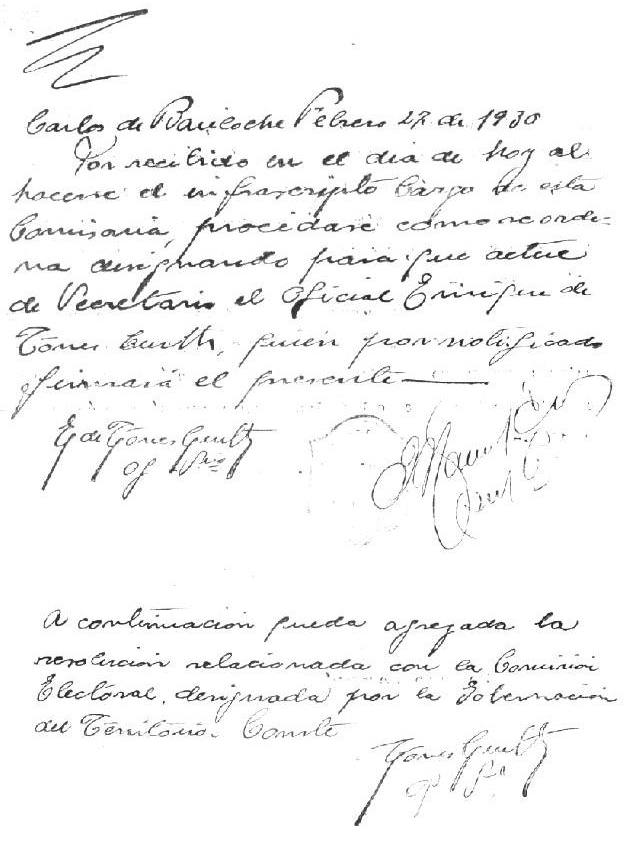 Carlos de Bariloche Febrero 27 de 1930
Por recibido en el dia de hoy al
hacerse el infrascripto Cargo de esta
Comisaria, procédase como se orde-
na designando para que actue
de Secretario el Oficial Enrique de
Torres Curth, quien por notificado
firmará el presente
E de Torres Curth
A continuación queda agregada la
resolución relacionada con la Comisión
Electoral, designada por la Gobernación
del Territorio. Conste
Torres Curth